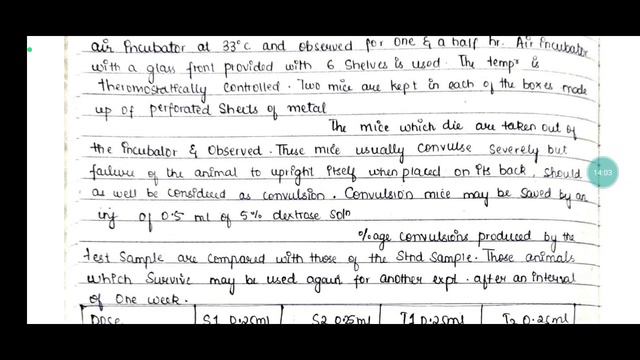 air Incubator at 33°C and observed for one & a half hr. Air incubator
with a glass front provided with 6 shelves is used. The tempr is
theromostatically controlled. Two mice are kept in each of the boxes made
up of perforated sheets of metal
The mice which die are taken out of
the incubator & observed. These mice usually convulse severely but
failure of the animal to upright itself when placed on its back, should
as well be considered as convulsion. Convulsion mice may be saved by an
inj of 0.5 ml of 5% dextrose soln
%age convulsions produced by the
test sample are compared with those of the stnd sample. Those animals
which survive may be used again for another expt. after an interval
of one week.
Dose S1 0.25ml S2 0.25ml T1 0.25ml T2 0.25ml
14:03